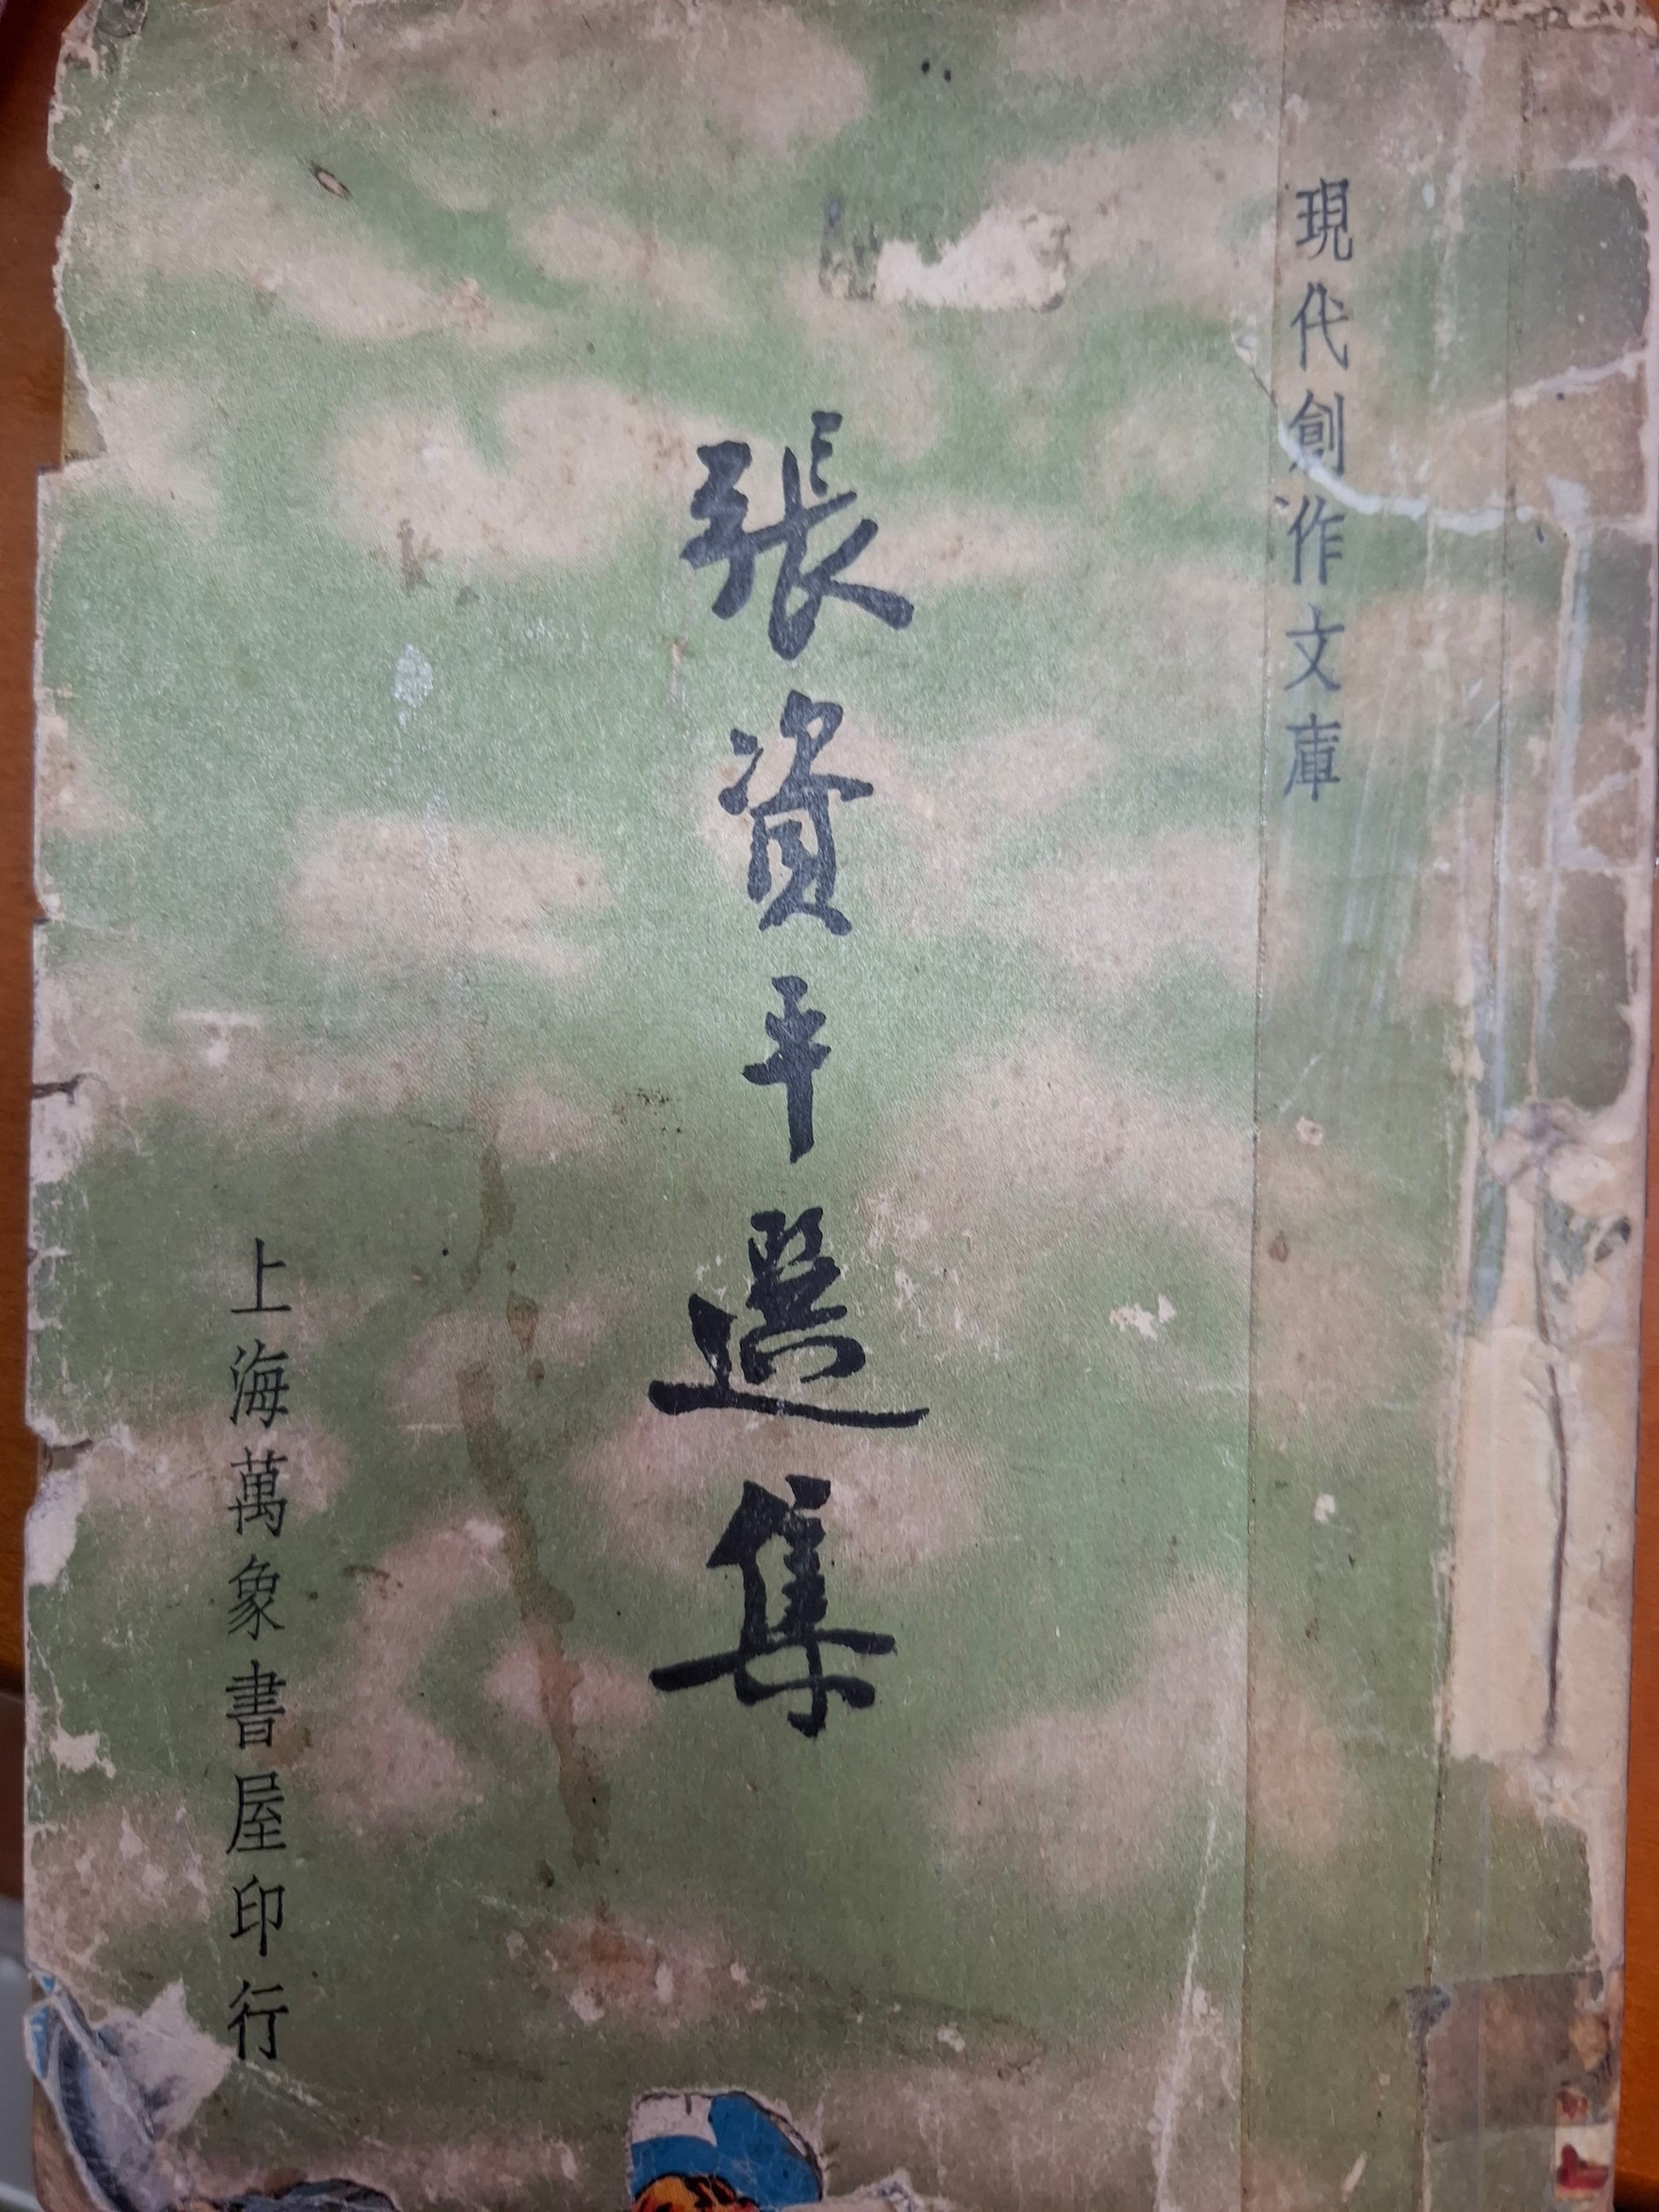 現代創作文庫
張資平選集
上海萬象書屋印行